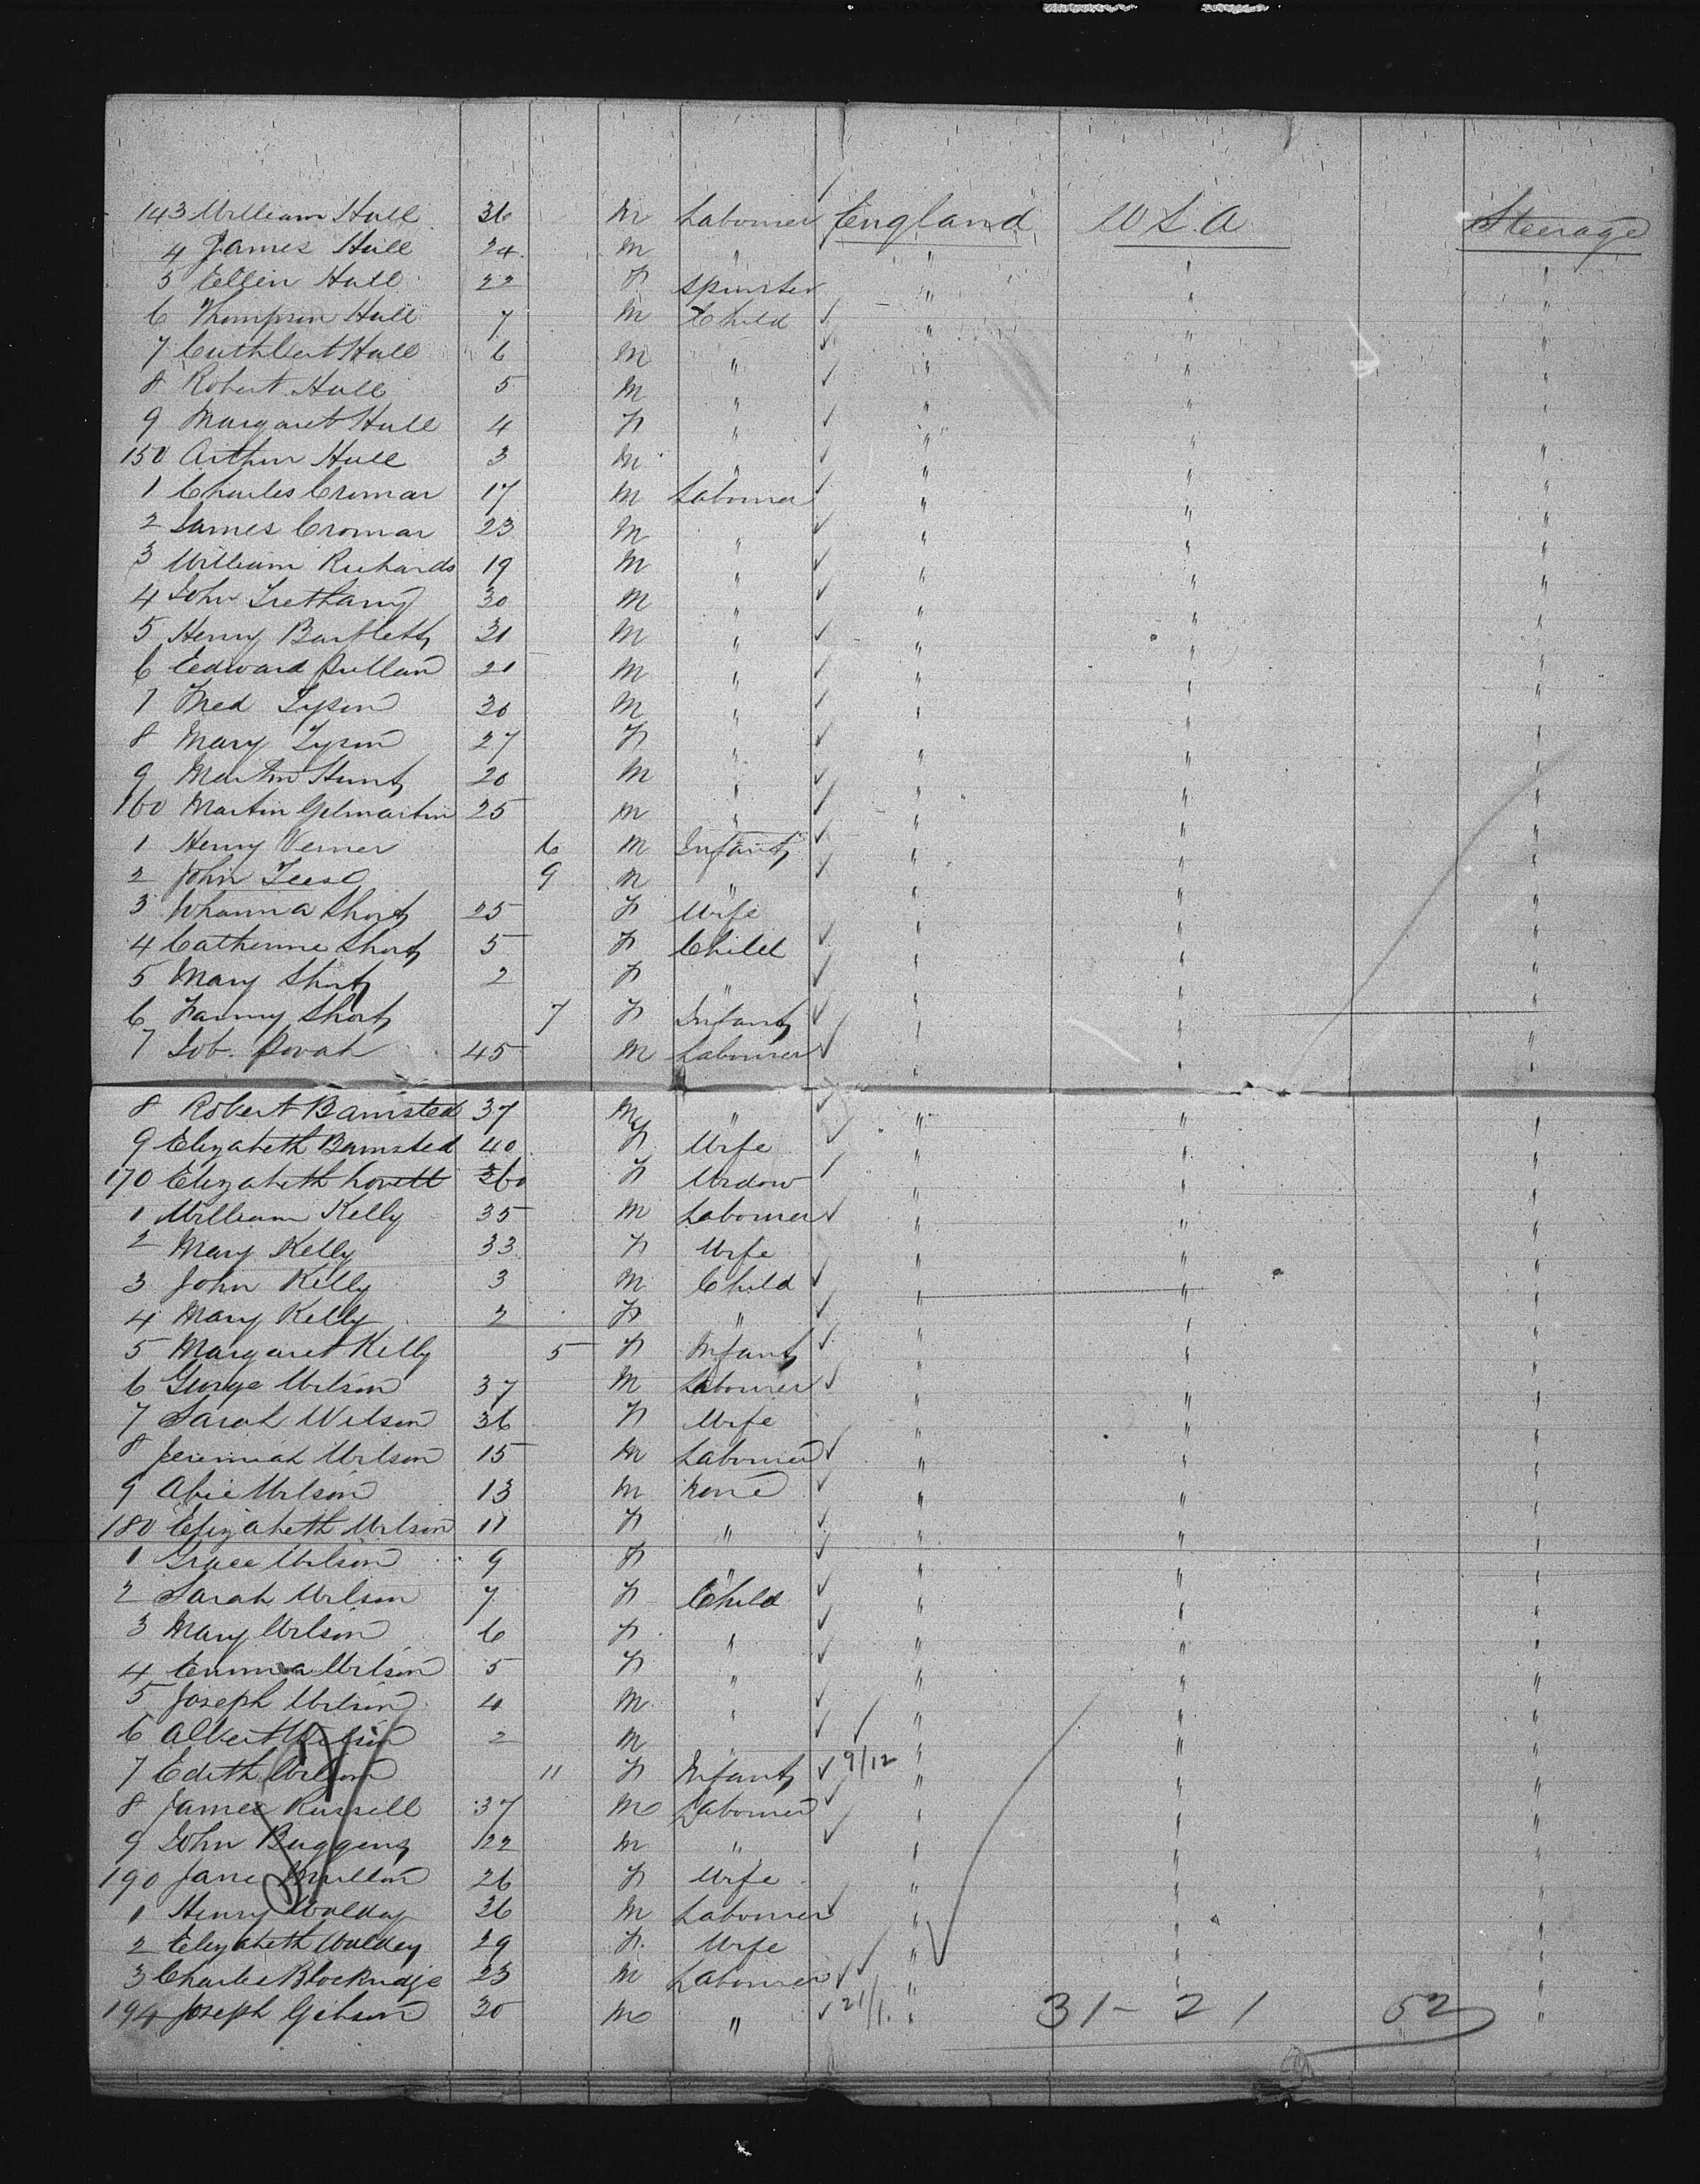 143 William Hall 36 M Labourer England U.S.A Steerage
4 James Hall 24 M " " " "
5 Ellen Hall 22 F Spinster " " "
6 Thompson Hall 7 M Child " " "
7 Cuthbert Hall 6 M " " " "
8 Robert Hall 5 M " " " "
9 Margaret Hall 4 F " " " "
150 Arthur Hall 3 M " " " "
1 Charles Cromar 17 M Labourer " " "
2 James Cromar 23 M " " " "
3 William Richards 19 M " " " "
4 John 30 M " " " "
5 Henry Bartlett 31 M " " " "
6 Edward Pullan 21 M " " " "
7 Fred Tyson 30 M " " " "
8 Mary Tyson 27 F " " " "
9 Martin Hunt 20 M " " " "
160 Martin Gilmartin 25 M " " " "
1 Henry Verner 6 M Infant " " "
2 John 9 M " " " "
3 Johanna Short 25 F Wife " " "
4 Catherine Short 5 F Child " " "
5 Mary Short 2 F " " " "
6 Fanny Short 7 F Infant " " "
7 Job. Povah 45 M Labourer " " "
8 Robert Bamsted 37 M " " " "
9 Elizabeth Bamsted 40 F Wife " " "
170 Elizabeth Lovett 60 F Widow " " "
1 William Kelly 35 M Labourer " " "
2 Mary Kelly 33 F Wife " " "
3 John Kelly 3 M Child " " "
4 Mary Kelly 2 F " " " "
5 Margaret Kelly 5 F Infant " " "
6 George Wilson 37 M Labourer " " "
7 Sarah Wilson 36 F Wife " " "
8 Jeremiah Wilson 15 M Labourer " " "
9 Abie Wilson 13 M None " " "
180 Elizabeth Wilson 11 F " " " "
1 Grace Wilson 9 F " " " "
2 Sarah Wilson 7 F Child " " "
3 Mary Wilson 6 F " " " "
4 Emma Wilson 5 F " " " "
5 Joseph Wilson 4 M " " " "
6 Albert Wilson 2 M " " " "
7 Edith Wilson 11 F Infant 9/12 " " "
8 James Russell 37 M Labourer " " "
9 John Buggens 22 M " " " "
190 Jane Mullon 26 F Wife " " "
1 Henry Walday 36 M Labourer " " "
2 Elizabeth Walday 29 F Wife " " "
3 Charles Blockridge 23 M Labourer " " "
194 Joseph Gibson 30 M " 21/1. " 31 - 21 52 "